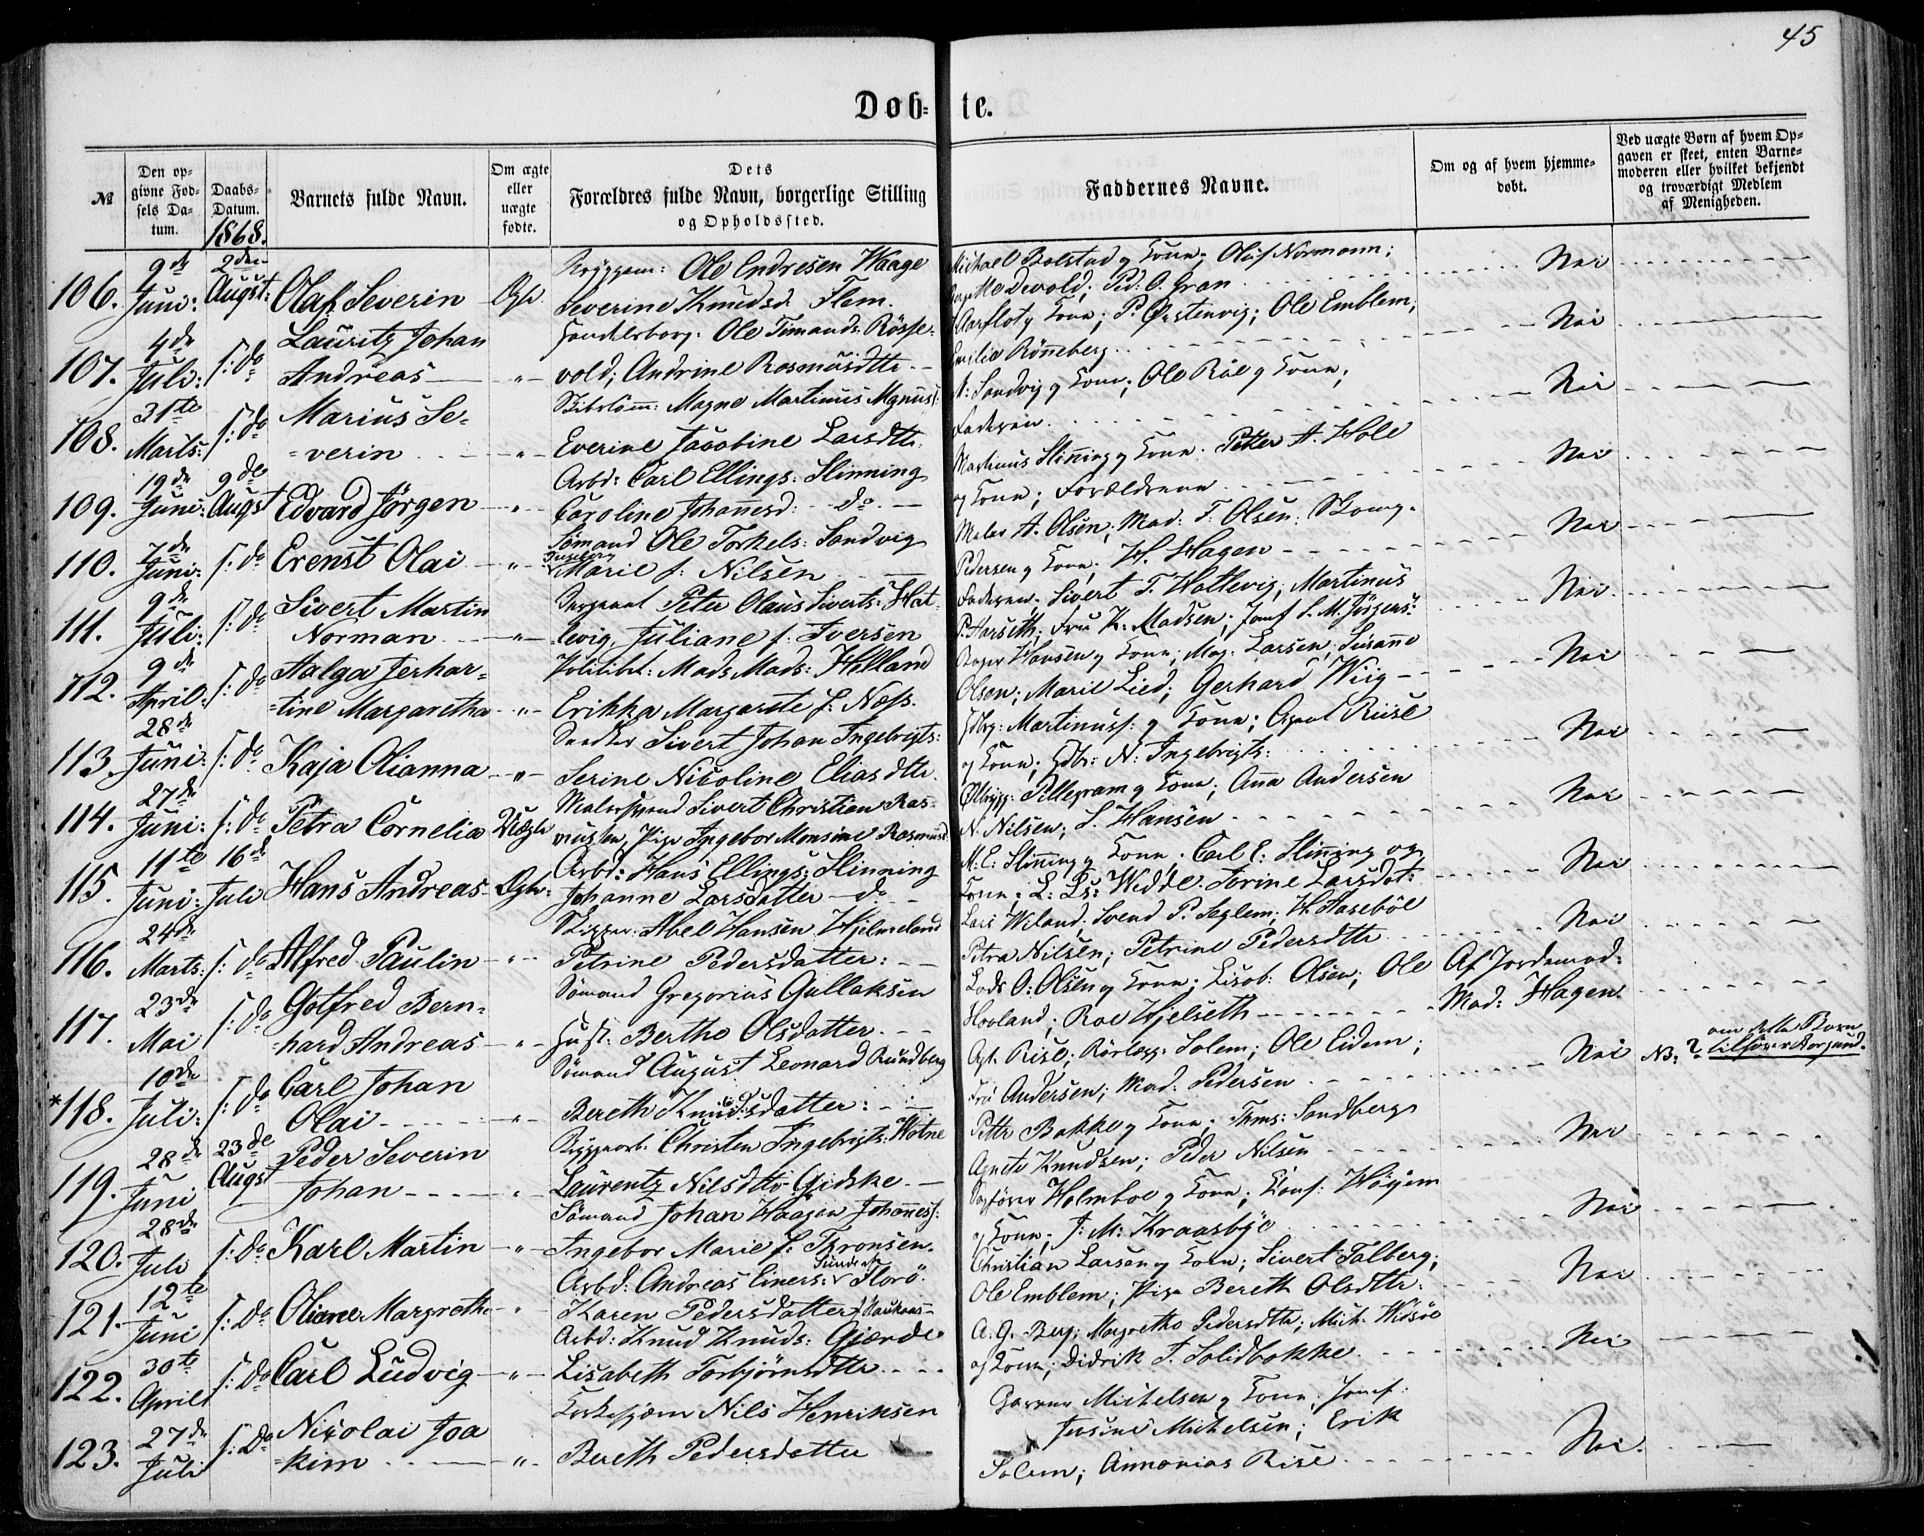 45
Døb= te.
№
Den op-
givne Fød-
sels Da-
tum.
Daabs-
Datum.
1868.
Barnets fulde Navn.
Om ægte
eller
uægte
fødte.
Dets
Forældres fulde Navn, borgerlige Stilling
og Opholdssted.
Faddernes Navne.
Om og af hvem hjemme-
døbt.
Ved uægte Børn af hvem Op-
gaven er skeet, enten Barne-
moderen eller hvilket bekjendt
og troværdigt Medlem
af Menigheden.
106. 9de Juni: 2den Augst: Olaf Severin Ægte
Ole Endresen Haage
Severine Knudsd. Flem.
Michael Bolstad og Kone; Oluf Normann;
Devold; Ped: O. Gran
Nei
107. 4de Juli: s: Do Lauritz Johan
Andreas - " -
Ole Timands: Røsse-
vold; Andrine Rasmusdtr.
Aarflot og Kone; P. Ørstenvig; Ole Emblem;
Emilie Rønneberg
Nei
108. 31te Marts: s: Do Marius Se-
verin - " -
Magne Martinus Magnuss:
Everine Jacobine Larsdtr.
Sandvig og Kone; Ole Røe og Kone;
Faderen
Nei
109. 19de Juni: 9de Augst Edvard Jørgen - " -
Arbd: Carl Ellings: Slinning
Caroline Johanesd: Do
Martinus Slinning og Kone. Petter A. Hole
og Kone; Forældrene
Nei
110. 7de Juni: s: Do Erenst Olai - " -
Sømand Ole Torkels: Sandvig
Ingeborg
Marie f: Nilsen
Maler A. Olsen; Mad: T. Olsen; Skomg.
Pedersen og Kone; H. Hagen
Nei
111. 9de Juli: s: Do Sivert Martin
Norman - " -
Sergeant Peter Olaus Siverts: Hat-
levig, Juliane f: Iversen
Faderen; Sivert T. Hatlevig; Martinus
P. Harseth; Fru K. Madsen; Jomf S. M. Jørgens:
Nei
112. 9de April: s: Do Halga Jerhar-
tine Margaretha - " -
Politibt: Mads Mads: Helland
Erikka Margrete f: Næss.
Bager Hansen og Kone; Mag: Larsen; Susanne
Olsen; Marie Lied; Gerhard Wiig
Nei
113. 28de Juni: s: Do Kaja Olianna - " -
Snedker Sivert Johan Ingebrigts:
Serine Nicoline Eliasdtr.
Martinuss: og Kone; Agent Riise
og Kone; N: Ingebrigts:
Nei
114. 27de Juni: s: Do Petra Cornelia Uægte
Malersvend Sivert Christian Ras-
mussen, Pige Ingebor Monsine Rasmusd.
Pillegram og Kone; Ana Andersen
N. Nilsen; L. Hansen
Nei
115. 11te Juni: 16de Juli Hans Andreas Ægte:
Arbd: Hans Ellings: Slinning
Johanne Larsdatter Do
M: E: Slinning og Kone; Carl E: Slinning og
Kone; L: Ls: Wedde. Serine Larsdat:
Nei
116. 24de Marts: s: Do Alfred Paulin - " -
Skipper: Abel Hansen Hjelmeland
Petrine Pedersdatter:
Lars Wiland; Svend P. Seglem; H. Aasebøe
Petra Nilsen; Petrine Pedersdtr
Nei
117. 23de Mai s: Do Gotfred Bern-
hard Andreas - " -
Sømand Gregorius Gullaksen
Hust: Berthe Olsdatter.
Lods O: Olsen og Kone; Lisab: Olsen; Ole
Hovland; Roe Hjelseth
Af Jordemod:
Mad: Hagen
*118. 10de Juli: s: Do Carl Johan
Olai - " -
Sømand August Leonard Rundberg
Bereth Knudsdatter:
Agt. Rise; Rørlægg: Solem; Ole Eidem;
Fru Andersen; Mad: Pedersen
Nei
NB: ? om dette Barn
tilhører Borgund.
119. 28de Juni 23de Augst Peder Severin
Johan - " -
Byggearb: Christen Ingebrigts: Hotne
Laurentz Nilsdttr Gidske.
Pettr Bakke og Kone; Thms: Sandberg
Agnete Knudsen; Peder Nilsen
Nei
120. 28de Juli s: Do Karl Martin - " -
Sømand Johan Haagen Johaness:
Ingebor Marie f: Thronsen.
Sagfører Holmboe og Kone; Kons: Høyem
og Kone; J: M: Kraasbye
Nei
121. 12te Juni s: Do Oliane Margrethe - " -
Arbd: Andreas Einers: Florø.
Karen Pedersdatter
Christian Larsen og Kone; Sivert Talberg;
Ole Emblem; Pige Bereth Olsdttr.
Nei
122. 30te April s: Do Carl Ludvig - " -
Arbd: Knud Knuds: Gjærde
Lisabeth Torbjørnsdttr
A. G. Berg; Margrethe Pedersdtr; Mich. Widsøe
og Kone; Didrik T. Solidbakke.
Nei
123. 27de Juli s: Do Nicolai Joa
kim - " -
Nils Henriksen
Bereth Pedersdatter
Garver Michelsen og Kone; Jomf:
Jusine Michelsen; Erik
Solem; Annanias Rise
Nei.